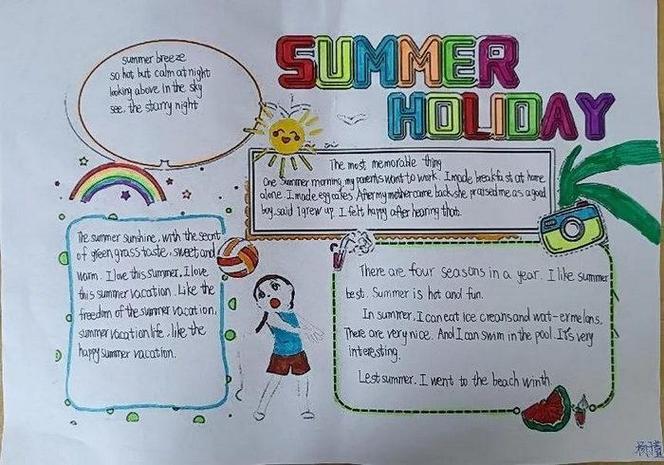 SUMMER
HOLIDAY
summer breeze
so hot but calm at night
looking above in the sky
see, the starry night
The most memorable thing
One summer morning, my parents went to work. I made breakfast at home
alone. I made egg cakes. After my mother came back, she praised me as a good
boy, said I grew up. I felt happy after hearing that.
The summer sunshine, with the secret
of green grass taste, sweet and
warm. I love this summer, I love
this summer vacation. Like the
freedom of the summer vacation,
summer vacation life, like the
happy summer vacation.
There are four seasons in a year. I like summer
best. Summer is hot and fun.
In summer, I can eat ice creans and wat-ermelons.
There are very nice. And I can swim in the pool. It's very
interesting.
Lest summer, I went to the beach winth